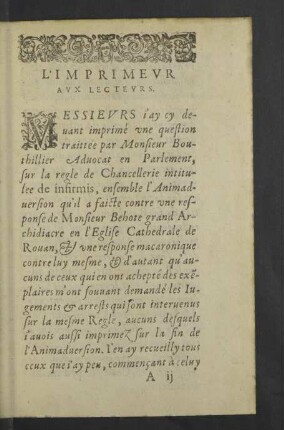 L'IMPRIMEVR
AVX LECTEVRS.
MESSIEVRS i'ay cy de-
uant imprimé vne question
traittee par Monsieur Bou-
thillier Aduocat en Parlement,
sur la regle de Chancellerie intitu-
lee de infirmis, ensemble l'Animad-
uersion qu'il a faicte contre vne res-
ponse de Monsieur Behote grand Ar-
chidiacre en l'Eglise Cathedrale de
Rouan, & vne response macaronique
contre luy mesme, & d'autant qu'au-
cuns de ceux qui en ont achepté des exē-
plaires m'ont souuant demandé les Iu-
gements & arrests qui sont interuenus
sur la mesme Regle, aucuns desquels
i'auois aussi imprimez sur la fin de
l'Animaduersion. I'en ay recueilly tous
ceux que i'ay peu, commençant à celuy
A ij